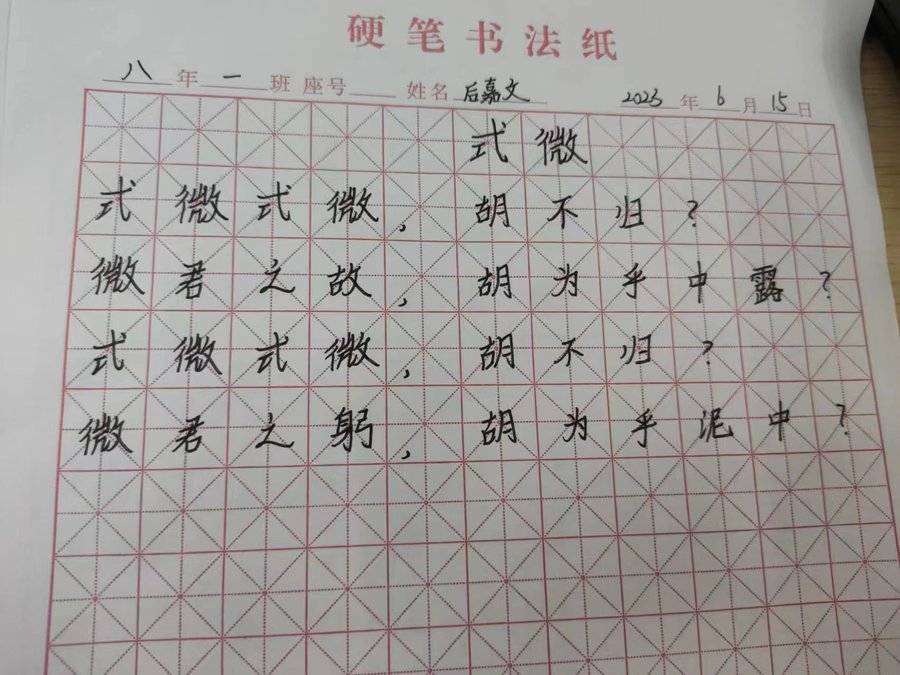 硬笔书法纸
八年一班 座号 姓名后嘉文 2023年6月15日
式微
式微式微，胡不归？
微君之故，胡为乎中露？
式微式微，胡不归？
微君之躬，胡为乎泥中？